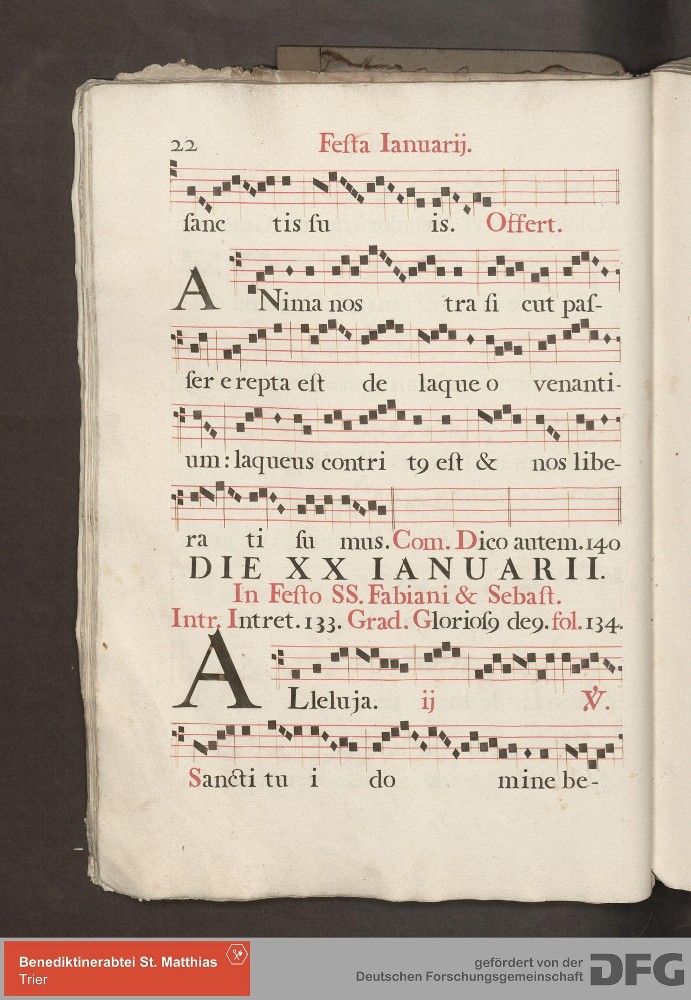 22 Festa Ianuarij.
sanc tis su is. Offert.
ANima nos tra si cut pas-
ser e repta est de laque o venanti-
um: laqueus contri t9 est & nos libe-
ra ti su mus. Com. Dico autem. 140
DIE XX IANUARII.
In Festo SS. Fabiani & Sebast.
Intr. Intret. 133. Grad. Glorios9 de9. fol. 134.
ALleluja. ij ℣.
Sancti tu i do mine be-
Benediktinerabtei St. Matthias
Trier
gefördert von der
Deutschen Forschungsgemeinschaft
DFG